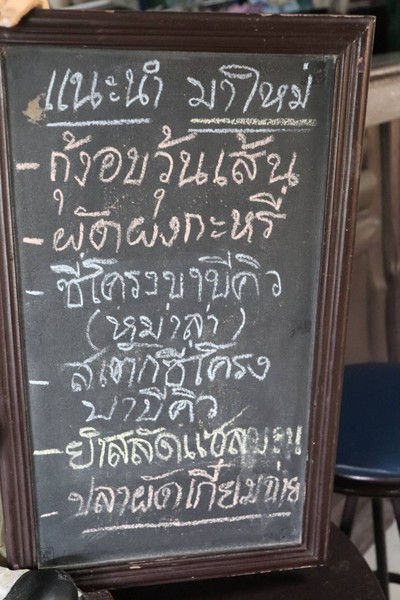 แนะนำ มาใหม่
- กุ้งอบวุ้นเส้น
- ผัดผงกะหรี่
- ซี่โครงบาบีคิว
(หม่าล่า)
- สเต็กซี่โครง
บาบีคิว
- ยำสลัดแซลมอน
- ปลาผัดเกี๊ยมฉ่าย